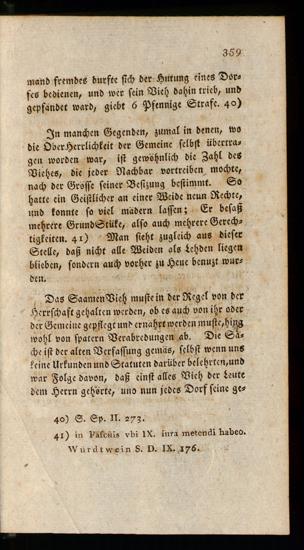 359
mand fremdes durfte sich der Hutung eines Dor-
fes bedienen, und wer sein Vieh dahin trieb, und
gepfandet ward, giebt 6 Pfennige Strafe. 40)
In manchen Gegenden, zumal in denen, wo
die OberHerrlichkeit der Gemeine selbst übertra-
gen worden war, ist gewöhnlich die Zahl des
Viehes, die jeder Nachbar vortreiben mochte,
nach der Grösse seiner Besizung bestimmt. So
hatte ein Geistlicher an einer Weide neun Rechte,
und konnte so viel madern lassen; Er besaß
mehrere GrundStüke, also auch mehrere Gerech-
tigkeiten. 41) Man sieht zugleich aus dieser
Stelle, daß nicht alle Weiden als Lehden liegen
blieben, sondern auch vorher zu Heue benuzt wur-
den.
Das SaamenVieh muste in der Regel von der
Herrschaft gehalten werden, ob es auch von ihr oder
der Gemeine gepflegt und ernährt werden muste, hing
wohl von spätern Verabredungen ab. Die Sa-
che ist der alten Verfassung gemäs, selbst wenn uns
keine Urkunden und Statuten darüber belehrten, und
war Folge davon, daß einst alles Vieh der Leute
dem Herrn gehörte, und nun jedes Dorf seine ge-
40) S. Sp. II. 273.
41) in Pascuis vbi IX. iura metendi habeo.
Würdtwein S. D. IX. 176.